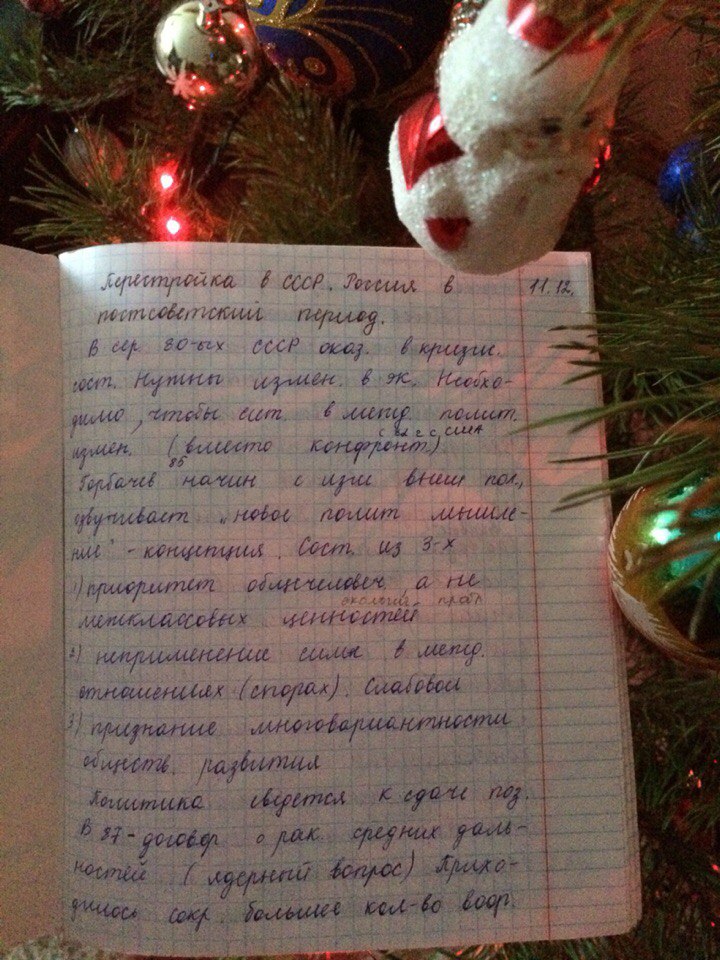 Перестройка в СССР. Россия в
11.12.
постсоветский период.
В сер 80-ых СССР оказ. в кризис.
сост. Нужны измен. в эк. Необхо-
димо, чтобы сит. в межд. полит.
с США
измен. (вместо конфронт.)
85
Горбачев начин с изме внеш пол.,
озвучивает "новое полит мышле-
ние" - концепция. Сост. из 3-х
1) приоритет общечеловеч а не
экологич пробл
межклассовых ценностей
2) неприменение силы в межд.
отношениях (спорах). Слабовой
3) признание многовариантности
обществ. развития
Политика сведется к сдаче поз.
В 87 - договор о рак. средних даль-
ностей (ядерный вопрос) Прихо-
дилось сокр. большее кол-во воор.